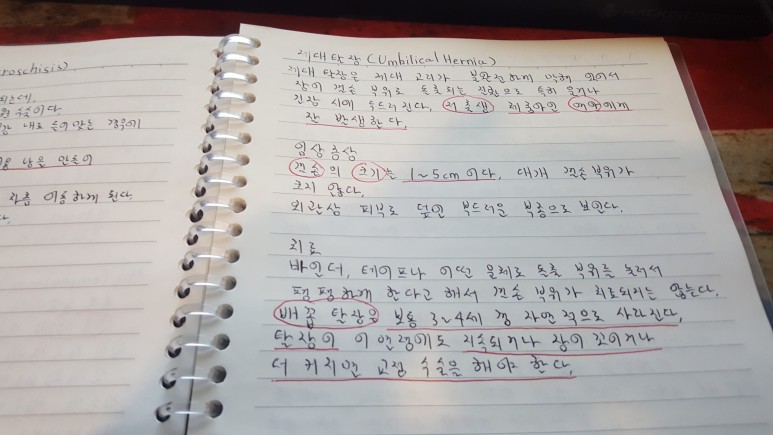 roschisis)
되는데,
수술이다.
내로 들어 맞는 경우에
낳은 만출이
자궁 이송하게 된다.
제대 탈장 (Umbilical Hernia)
제대 탈장은 제대 고리가 불완전하게 닫혀 있어서
장이 결손 부위로 돌출되는 질환으로 특히 울거나
긴장 시에 두드러진다. 저출생 체중아인 여아에게
잘 발생한다.
임상 증상
결손의 크기는 1~5cm이다. 대개 결손 부위가
크지 않다.
외관상 피부로 덮인 부드러운 부종으로 보인다.
치료
바인더, 테이프나 어떤 물체로 돌출 부위를 눌러서
팽팽하게 한다고 해서 결손 부위가 치료되지는 않는다.
배꼽 탈장은 보통 3~4세 경 자연적으로 사라진다.
탈장이 이 연령에도 지속되거나 장이 꼬이거나
더 커지면 교정 수술을 해야 한다.